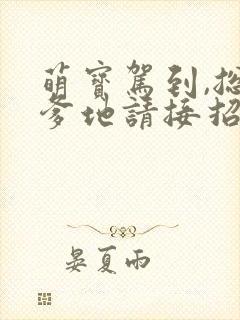 萌寶駕到,總
爹地請接招
晏夏雨